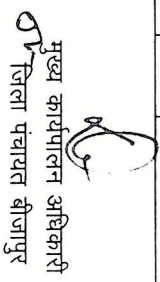 मुख्य कार्यपालन अधिकारी
जिला पंचायत बीजापुर